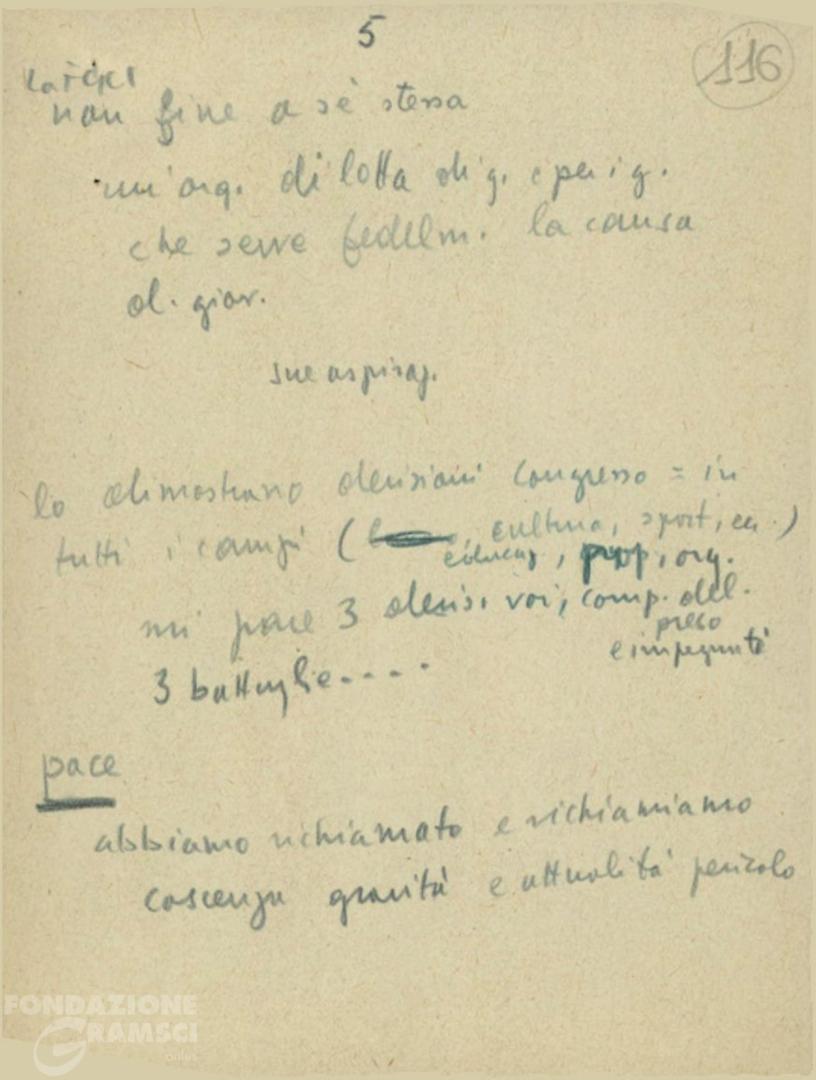 5
116
la FGCI
non fine a sè stessa
un'org. di lotta di g. e per i g.
che serve fedelm. la causa
d. giov.
sue aspiraz.
lo dimostrano decisioni Congresso = in
tutti i campi ( , cultura, sport, ecc.)
educaz, prop, org.
mi pare 3 decis. voi, comp. del.
preso
e impegnati
3 battaglie....
pace
abbiamo richiamato e richiamiamo
coscenza gravità e attualità pericolo
FONDAZIONE
GRAMSCI
onlus